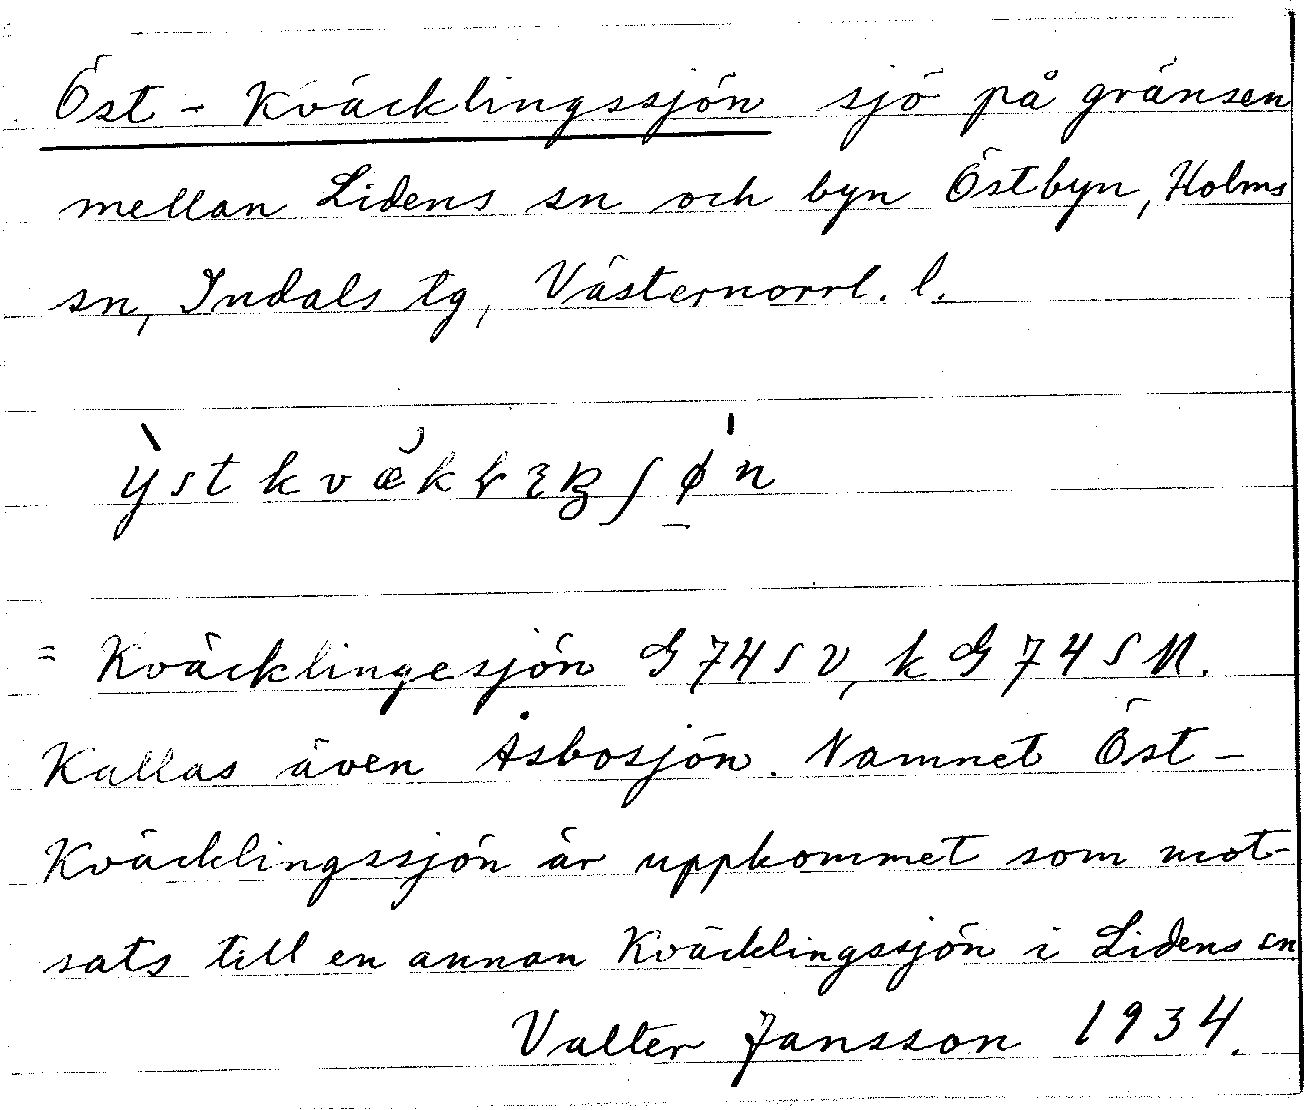 Öst-Kväcklingssjön sjö på gränsen
mellan Lidens sn och byn Östbyn, Holms
sn, Indals tg, Västernorrl. l.
= Kväcklingesjön G 74 SV, k G 74 S N.
Kallas även Åsbosjön. Namnet Öst-
Kväcklingssjön är uppkommet som mot-
sats till en annan Kväcklingssjön i Lidens sn
Valter Jansson 1934.